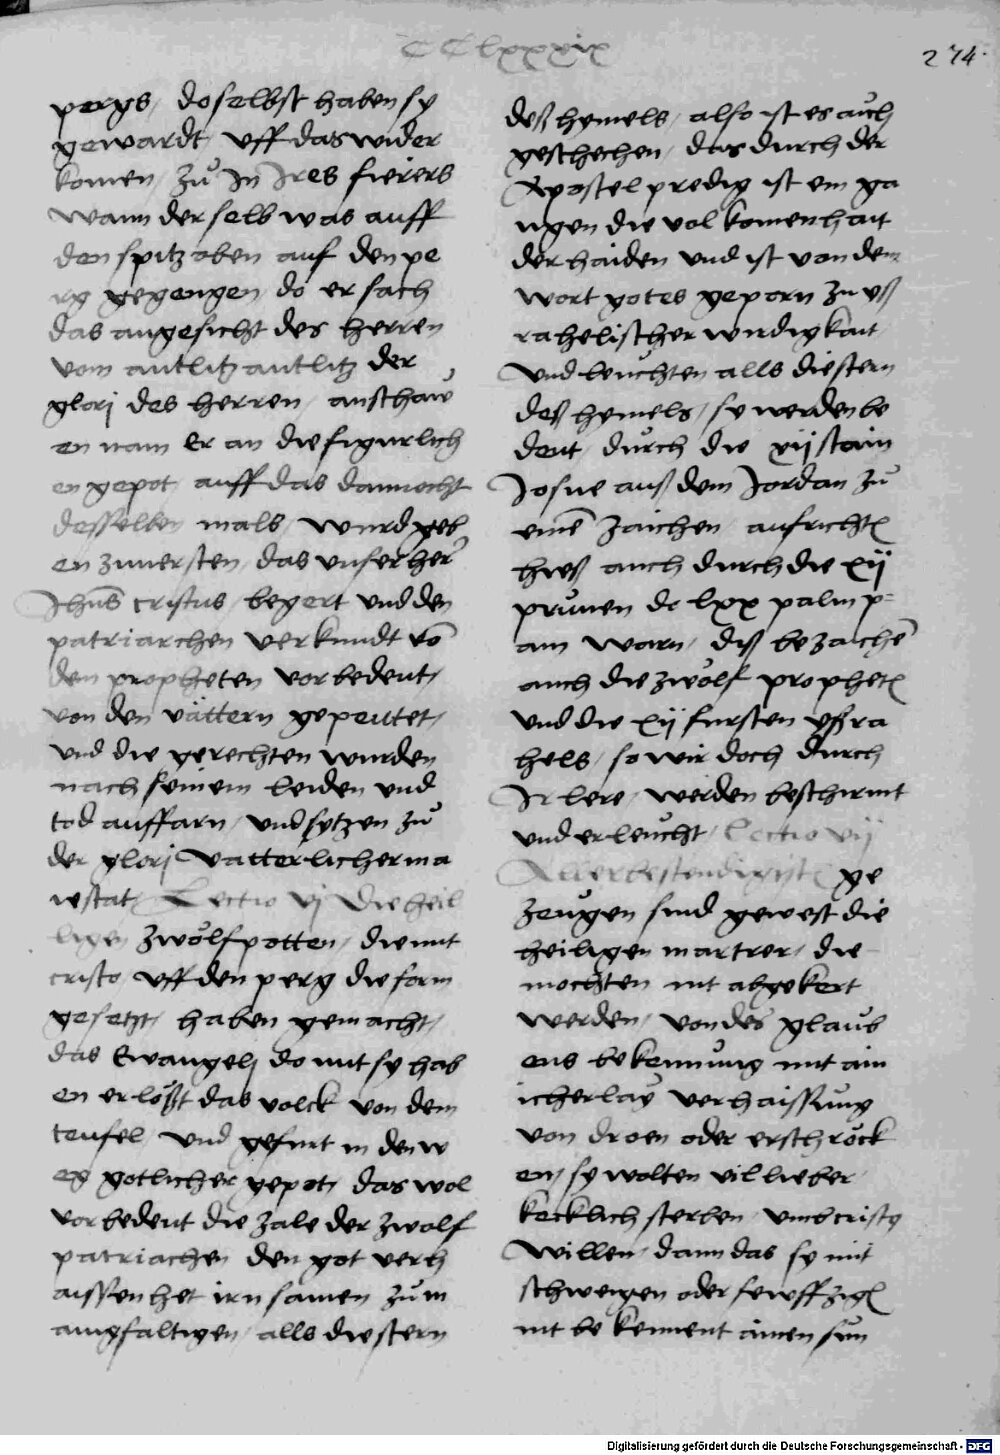 CClxxxix
274.
pergs / doselbst haben sy
gewardt / uff das wider
komen / zů In Ires fierers
wann der selb was auff
den spitz oben auf den pe
rg gegengen / do er sach
das angesicht des herren
vom antlitz antlitz der
glorj des herren / anschaw
en nam er an die figurlich
en gepot / auff das dannocht
desselben mals / wurd geb
en zuuersten / das unser her
Jhus cristus / begert und den
patriarchen verkundt vo
den propheten vorbedent /
von den vättern gepeutet /
und die gerechten wurden
nach seinem leiden und
tod auffarn / und sytzen zů
der glorj vatterlicher ma
iestat / Lectio vj Die heil
ligen zwölfpotten / die mit
cristo uff den perg die form
gesetzt / haben gemacht /
das Ewangelj do mit sy hab
en erlößt das volck von dem
teufel / und gefurt in den w
eg gotlicher gepot / das wol
vorbedeut die zale der zwölf
patriachen den got verh
aissen het irn samen zům
anigfaltigen / alls die stern
deß hymels / also ist es auch
geschechen / das durch der
Apostel predig ist ein ga
ngen die volkomenhait
der haiden und ist von dem
wort gotes geporn zu uß
rahelischer wirdigkait
und leuchten alls die stern
deß hymels / sy werden be
deut / durch die xij stain
Josue auß dem Jordan zů
eine zaichen / aufricht
hies auch durch die xij
prunen do lxx palm p=
am warn / diß bezaichen
auch die zwölf prophet
und die xij fursten ysra
hels / so wir doch durch
Ir lere / werden beschirmt
und erleucht / Lectio vij
Allerbestendigist ge
zeugen sind gewest die
heiligen martrer / die
mochten nit abgekert
werden / von des glaub
ens bekennung mit ain
icherlay verhaissung
von droen oder erschröck
en / sy wolten vil lieber /
kecklich sterben / umb cristy
willen / dann das sy mit
schweigen oder sewffzig
nit bekennent ainen sun
Digitalisierung gefördert durch die Deutsche Forschungsgemeinschaft - DFG